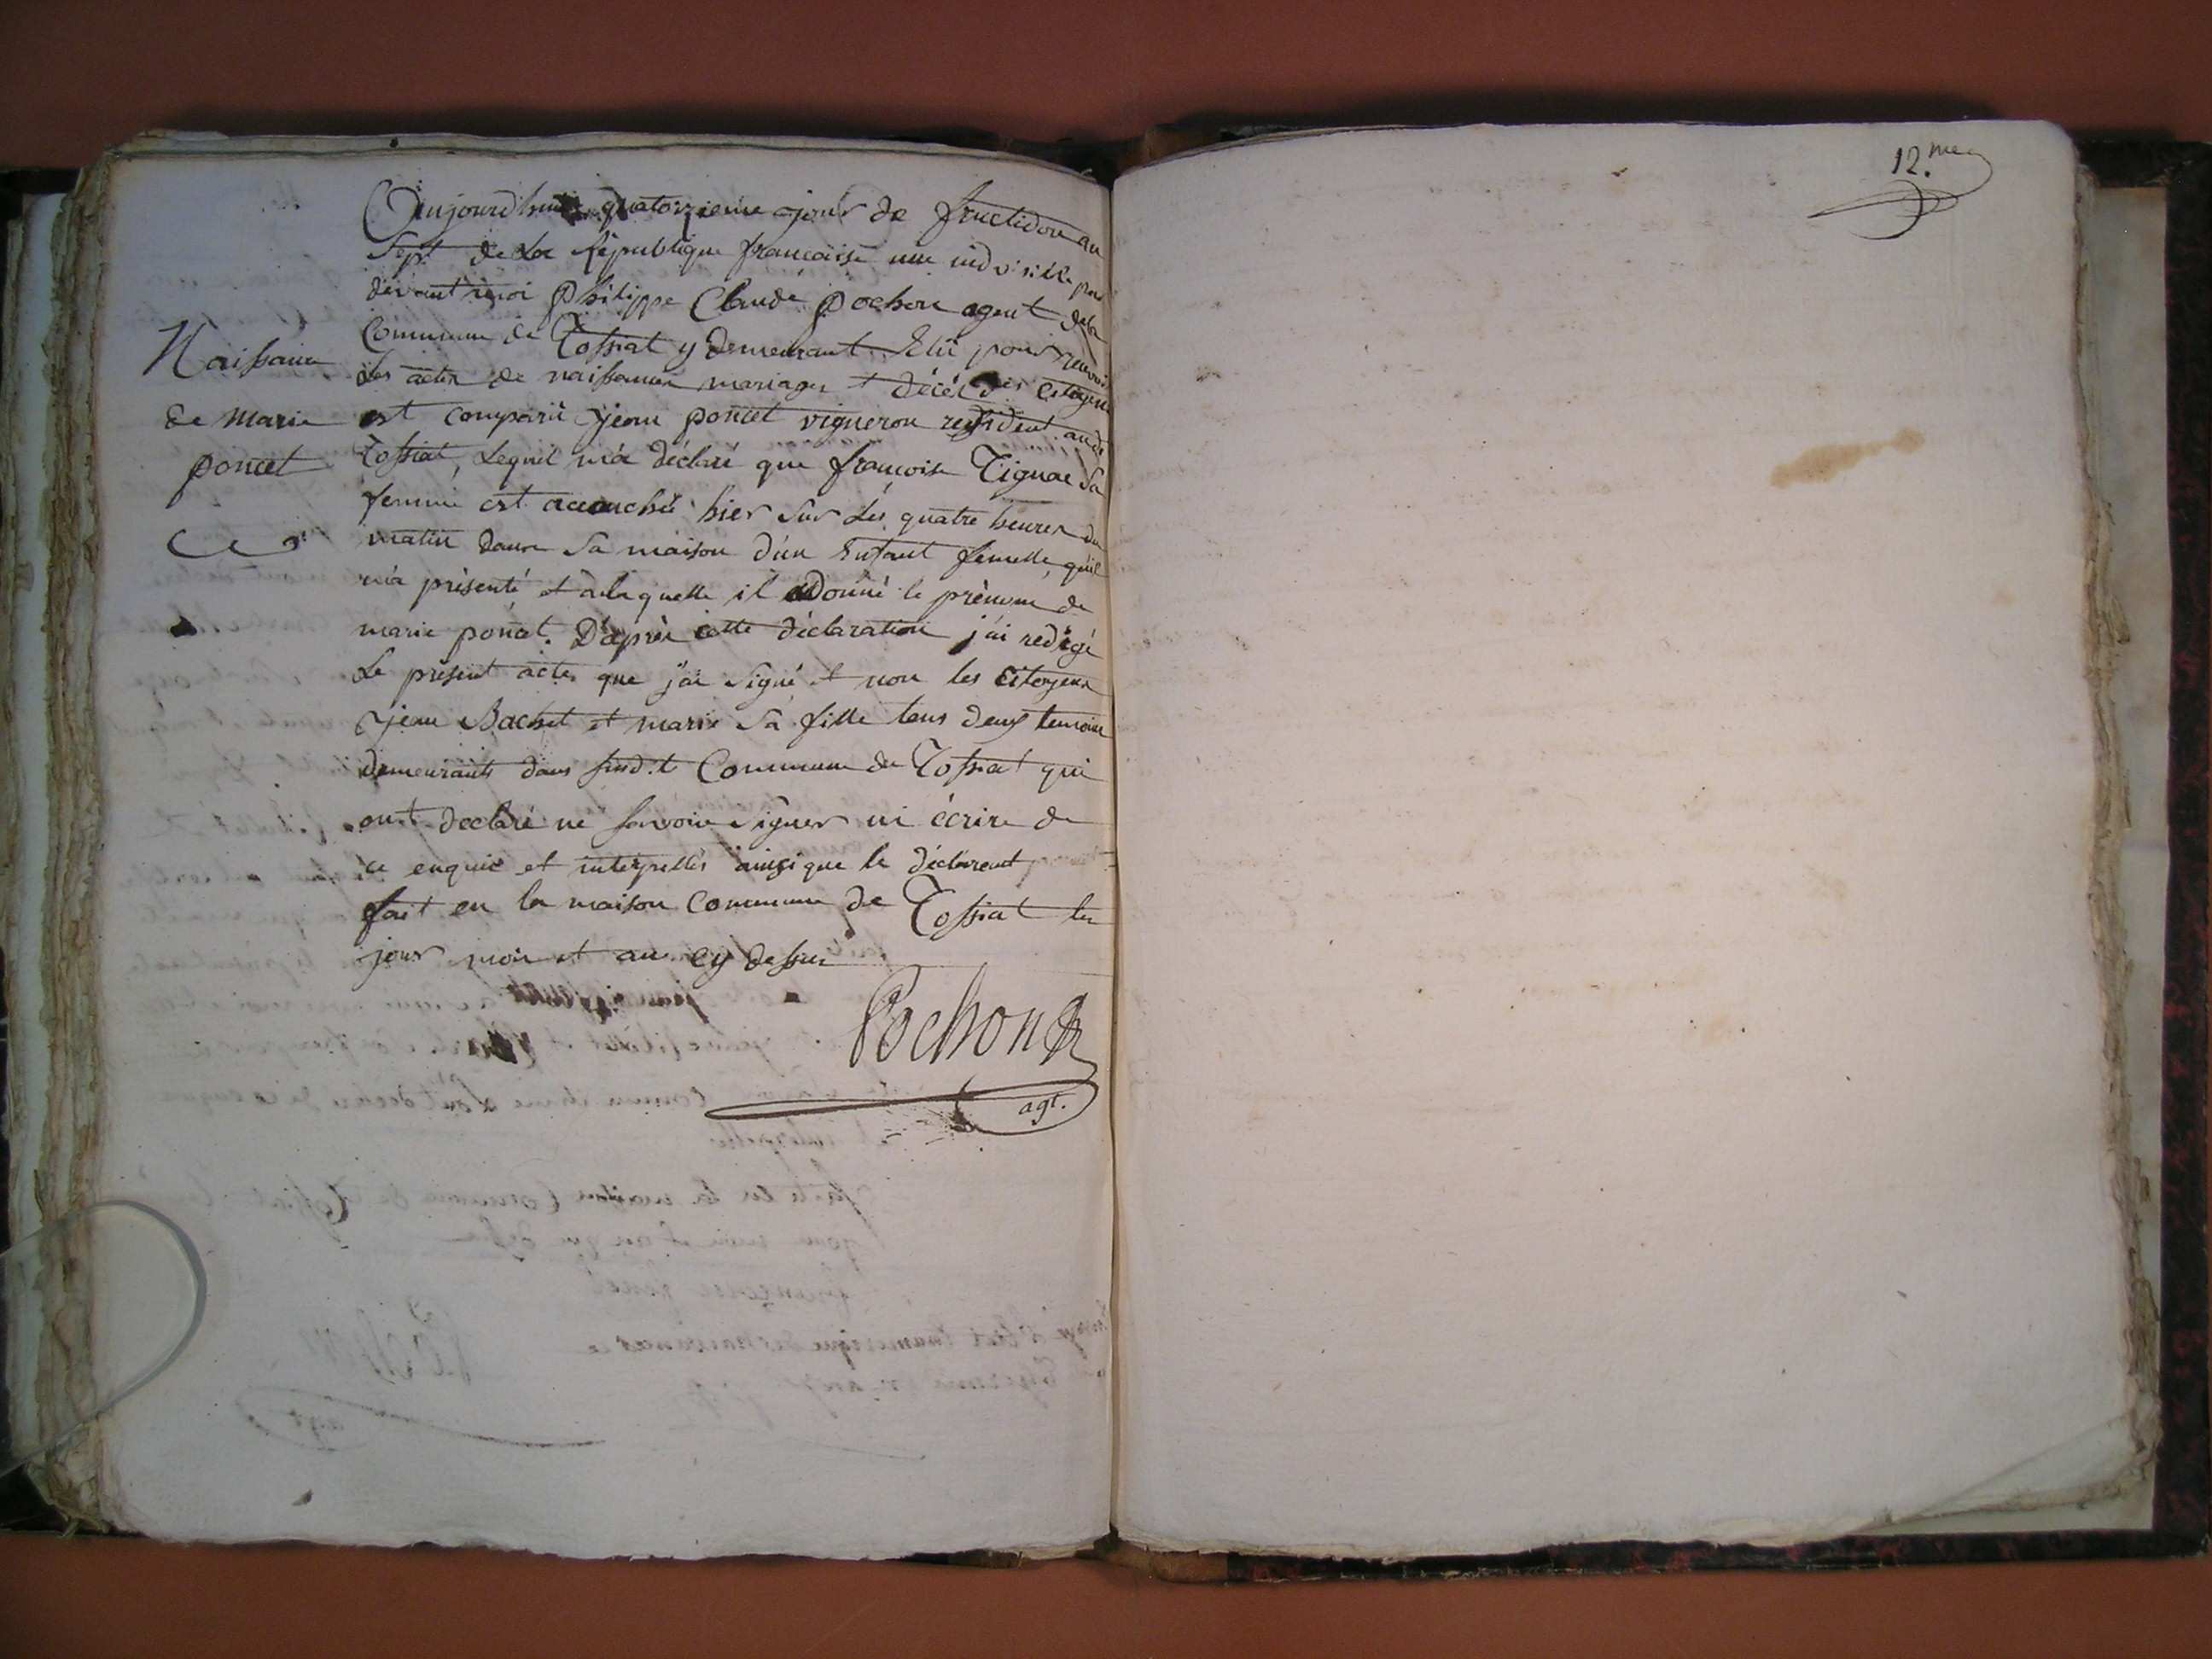 Naissance
de marie
poncet
Aujourdhui quatorzieme jour de fructidor an
Sept de La Republique francaise une indvisible par
devant moi philippe Claude pochon agent dela
Commune de Tossiat y demeurant Elû pour recevoir
Les actes de naissances mariages et décès des citoyens
est comparû jean poncet vigneron residant audt
Tossiat, Lequel m'a déclaré que francoise Tignat Sa
femme est accouchée hier Sur Les quatre heures du
matin dans Sa maison d'un Enfant femelle, qu'il
m'a présenté et àlaquelle il a donné le prénom de
marie poncet. D'après cette déclaration j'ai redigé
Le présent acte que j'ai Signé et non les citoyens
jean Bachet et marie Sa fille tous deux temoins
demeurants dans susd.t Commune de Tossiat qui
ont déclaré ne savoir Signer ni écrire de
ce enquis et interpellés ainsi que le déclarent
fait en la maison Commune de Tossiat les
jour mois et an cy dessus
Pochon
agt.
12.me